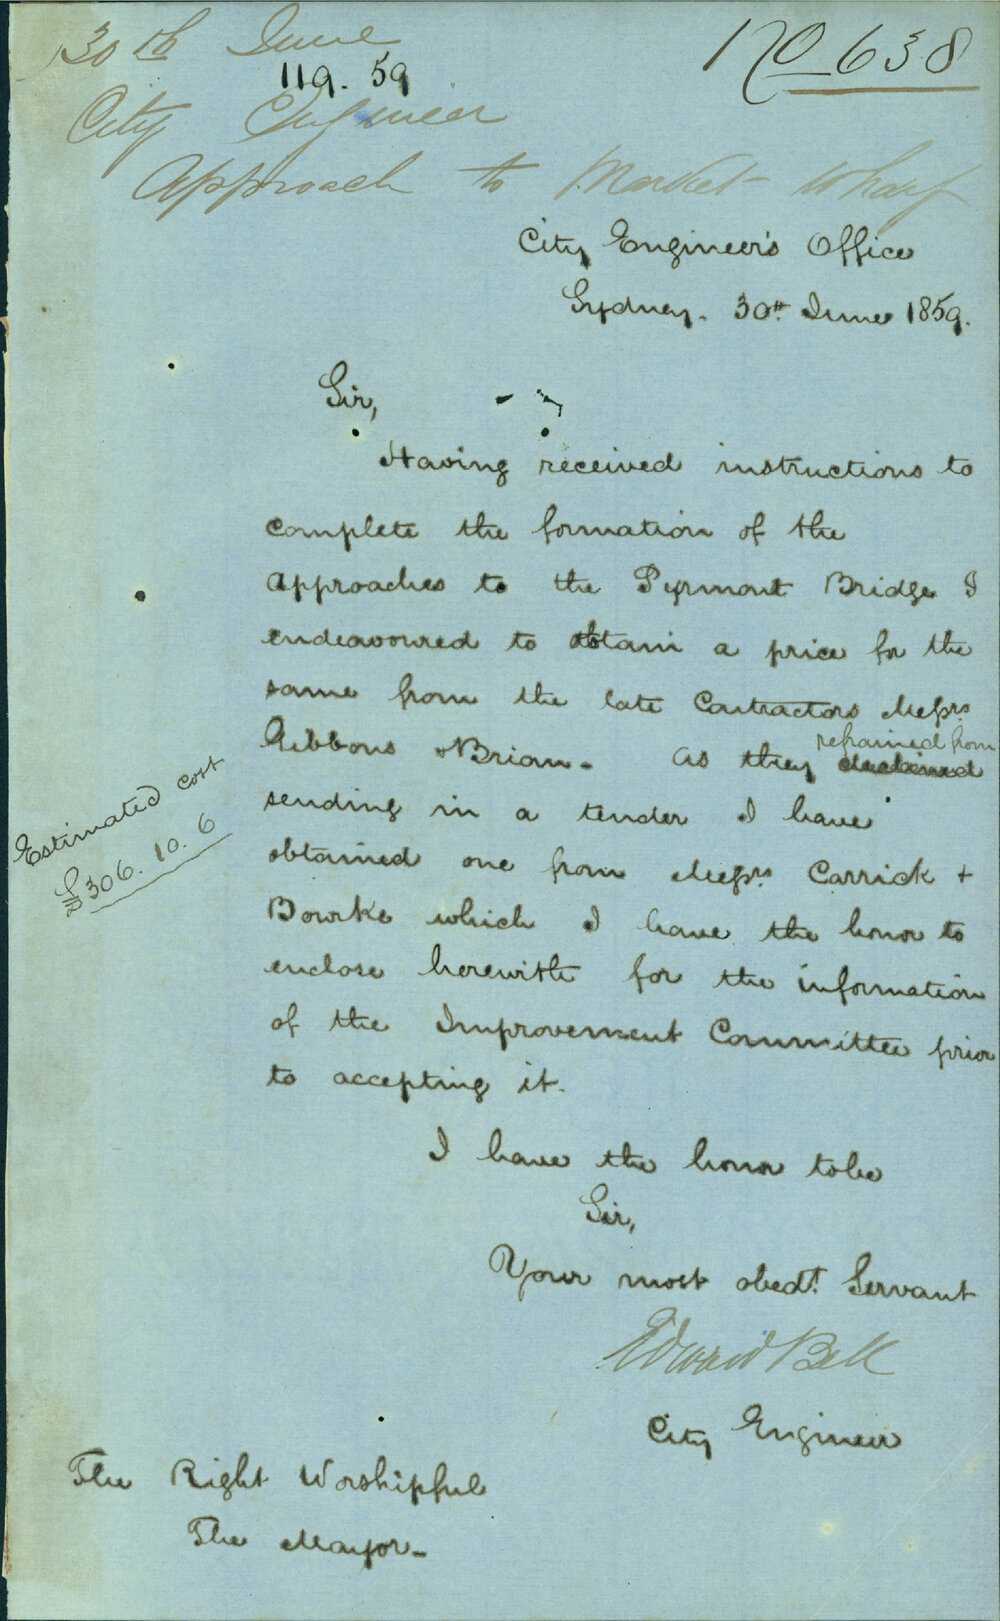 30th June
No 638
119. 59
City Engineer
Approach to Market Wharf
City Engineer's Office
Sydney. 30th June 1859.
Sir,
Having received instructions to
complete the formation of the
Approaches to the Pyrmont Bridge I
endeavoured to obtain a price for the
same from the late Contractors Messrs
Gibbons & Brian - As they declined refrained from
sending in a tender I have
obtained one from Messrs Carrick &
Bourke which I have the honor to
enclose herewith for the information
of the Improvement Committee prior
to accepting it.
Estimated cost
£306.10.6
I have the honor to be
Sir,
Your most obedt. Servant
Edward Bell
City Engineer
The Right Worshipful
The Mayor -